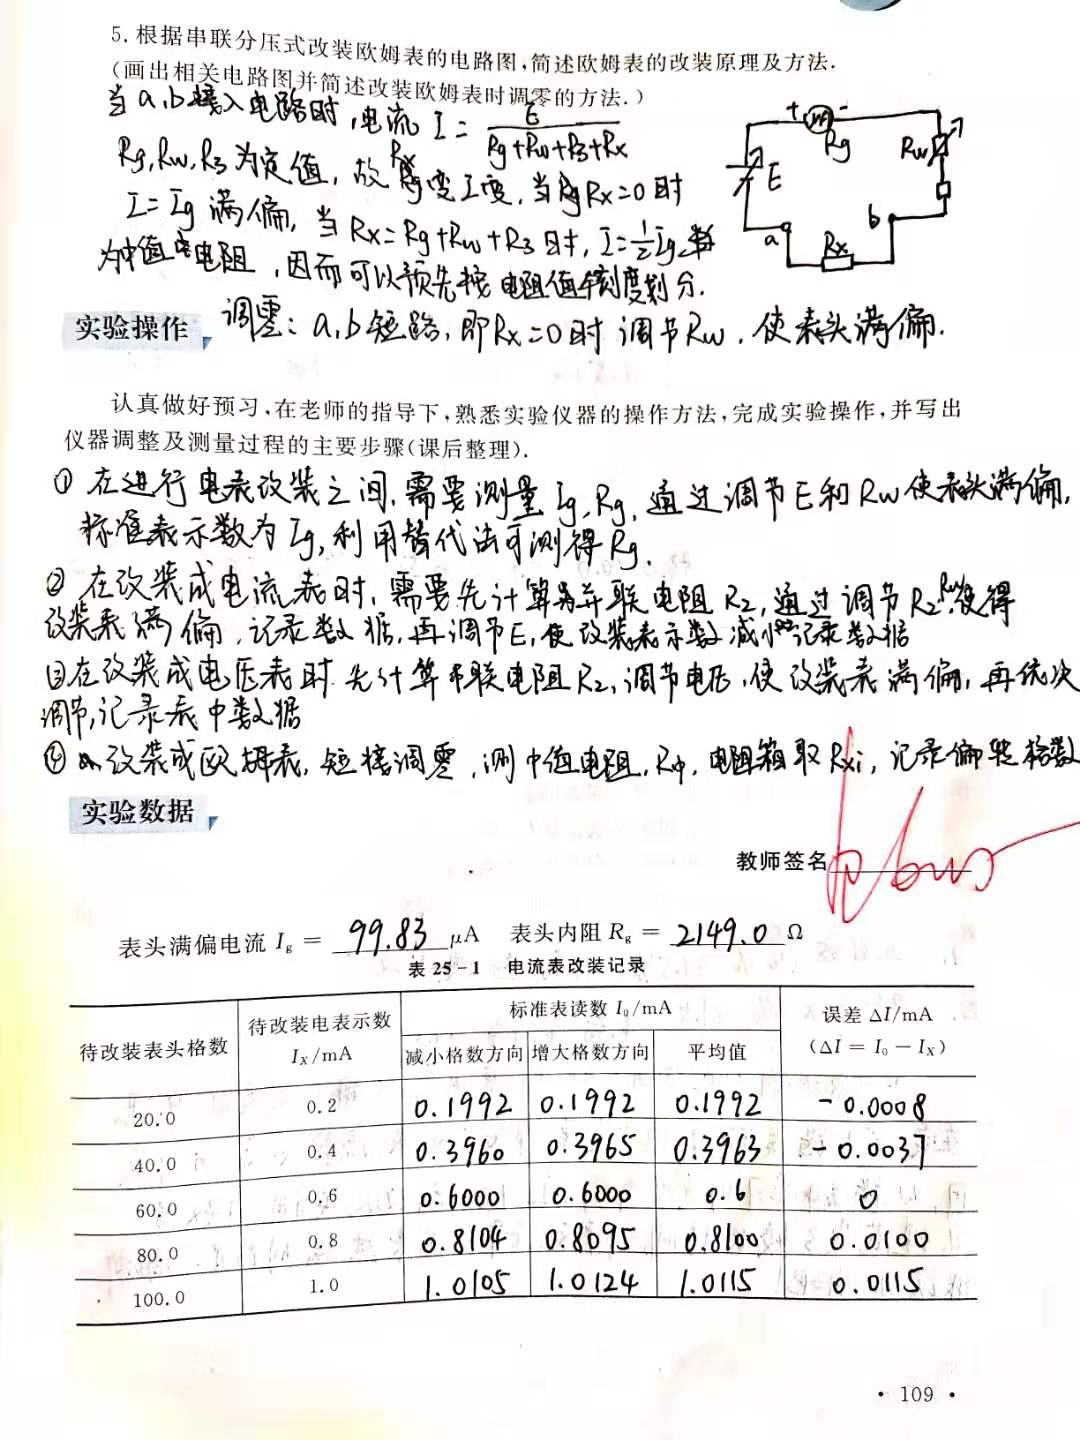 5. 根据串联分压式改装欧姆表的电路图,简述欧姆表的改装原理及方法.
(画出相关电路图并简述改装欧姆表时调零的方法.)
当a,b接入电路时,电流 I = E / (Rg+Rw+R3+Rx)
Rg,Rw,R3为定值,故Rx变I变,当Rx=0时
I=Ig满偏,当Rx=Rg+Rw+R3时,I=½Ig
为中值电阻,因而可以预先按电阻值刻度划分.
调零:a,b短路,即Rx=0时调节Rw,使表头满偏.
+ - Rg Rw E a b Rx
实验操作
认真做好预习,在老师的指导下,熟悉实验仪器的操作方法,完成实验操作,并写出
仪器调整及测量过程的主要步骤(课后整理).
① 在进行电表改装之间,需要测量Ig,Rg,通过调节E和Rw使表头满偏,
标准表示数为Ig,利用替代法可测得Rg.
② 在改装成电流表时,需要先计算并联电阻R2,通过调节R2 Rw使得
改装表满偏,记录数据,再调节E,使改装表示数减小 记录数据
③在改装成电压表时 先计算串联电阻R2,调节电压,使改装表满偏,再依次
调节,记录表中数据
④ 改装成欧姆表,短接调零,测中值电阻,R中,电阻箱取Rxi,记录偏转格数
实验数据
教师签名
表头满偏电流 Ig = 99.83 μA 表头内阻 Rg = 2149.0 Ω
表 25-1 电流表改装记录
待改装表头格数 待改装电表示数 Ix/mA 标准表读数 I0/mA 误差 ΔI/mA (ΔI = I0 - Ix)
减小格数方向 增大格数方向 平均值
20.0 0.2 0.1992 0.1992 0.1992 -0.0008
40.0 0.4 0.3960 0.3965 0.3963 -0.0037
60.0 0.6 0.6000 0.6000 0.6 0
80.0 0.8 0.8104 0.8095 0.8100 0.0100
100.0 1.0 1.0105 1.0124 1.0115 0.0115
· 109 ·